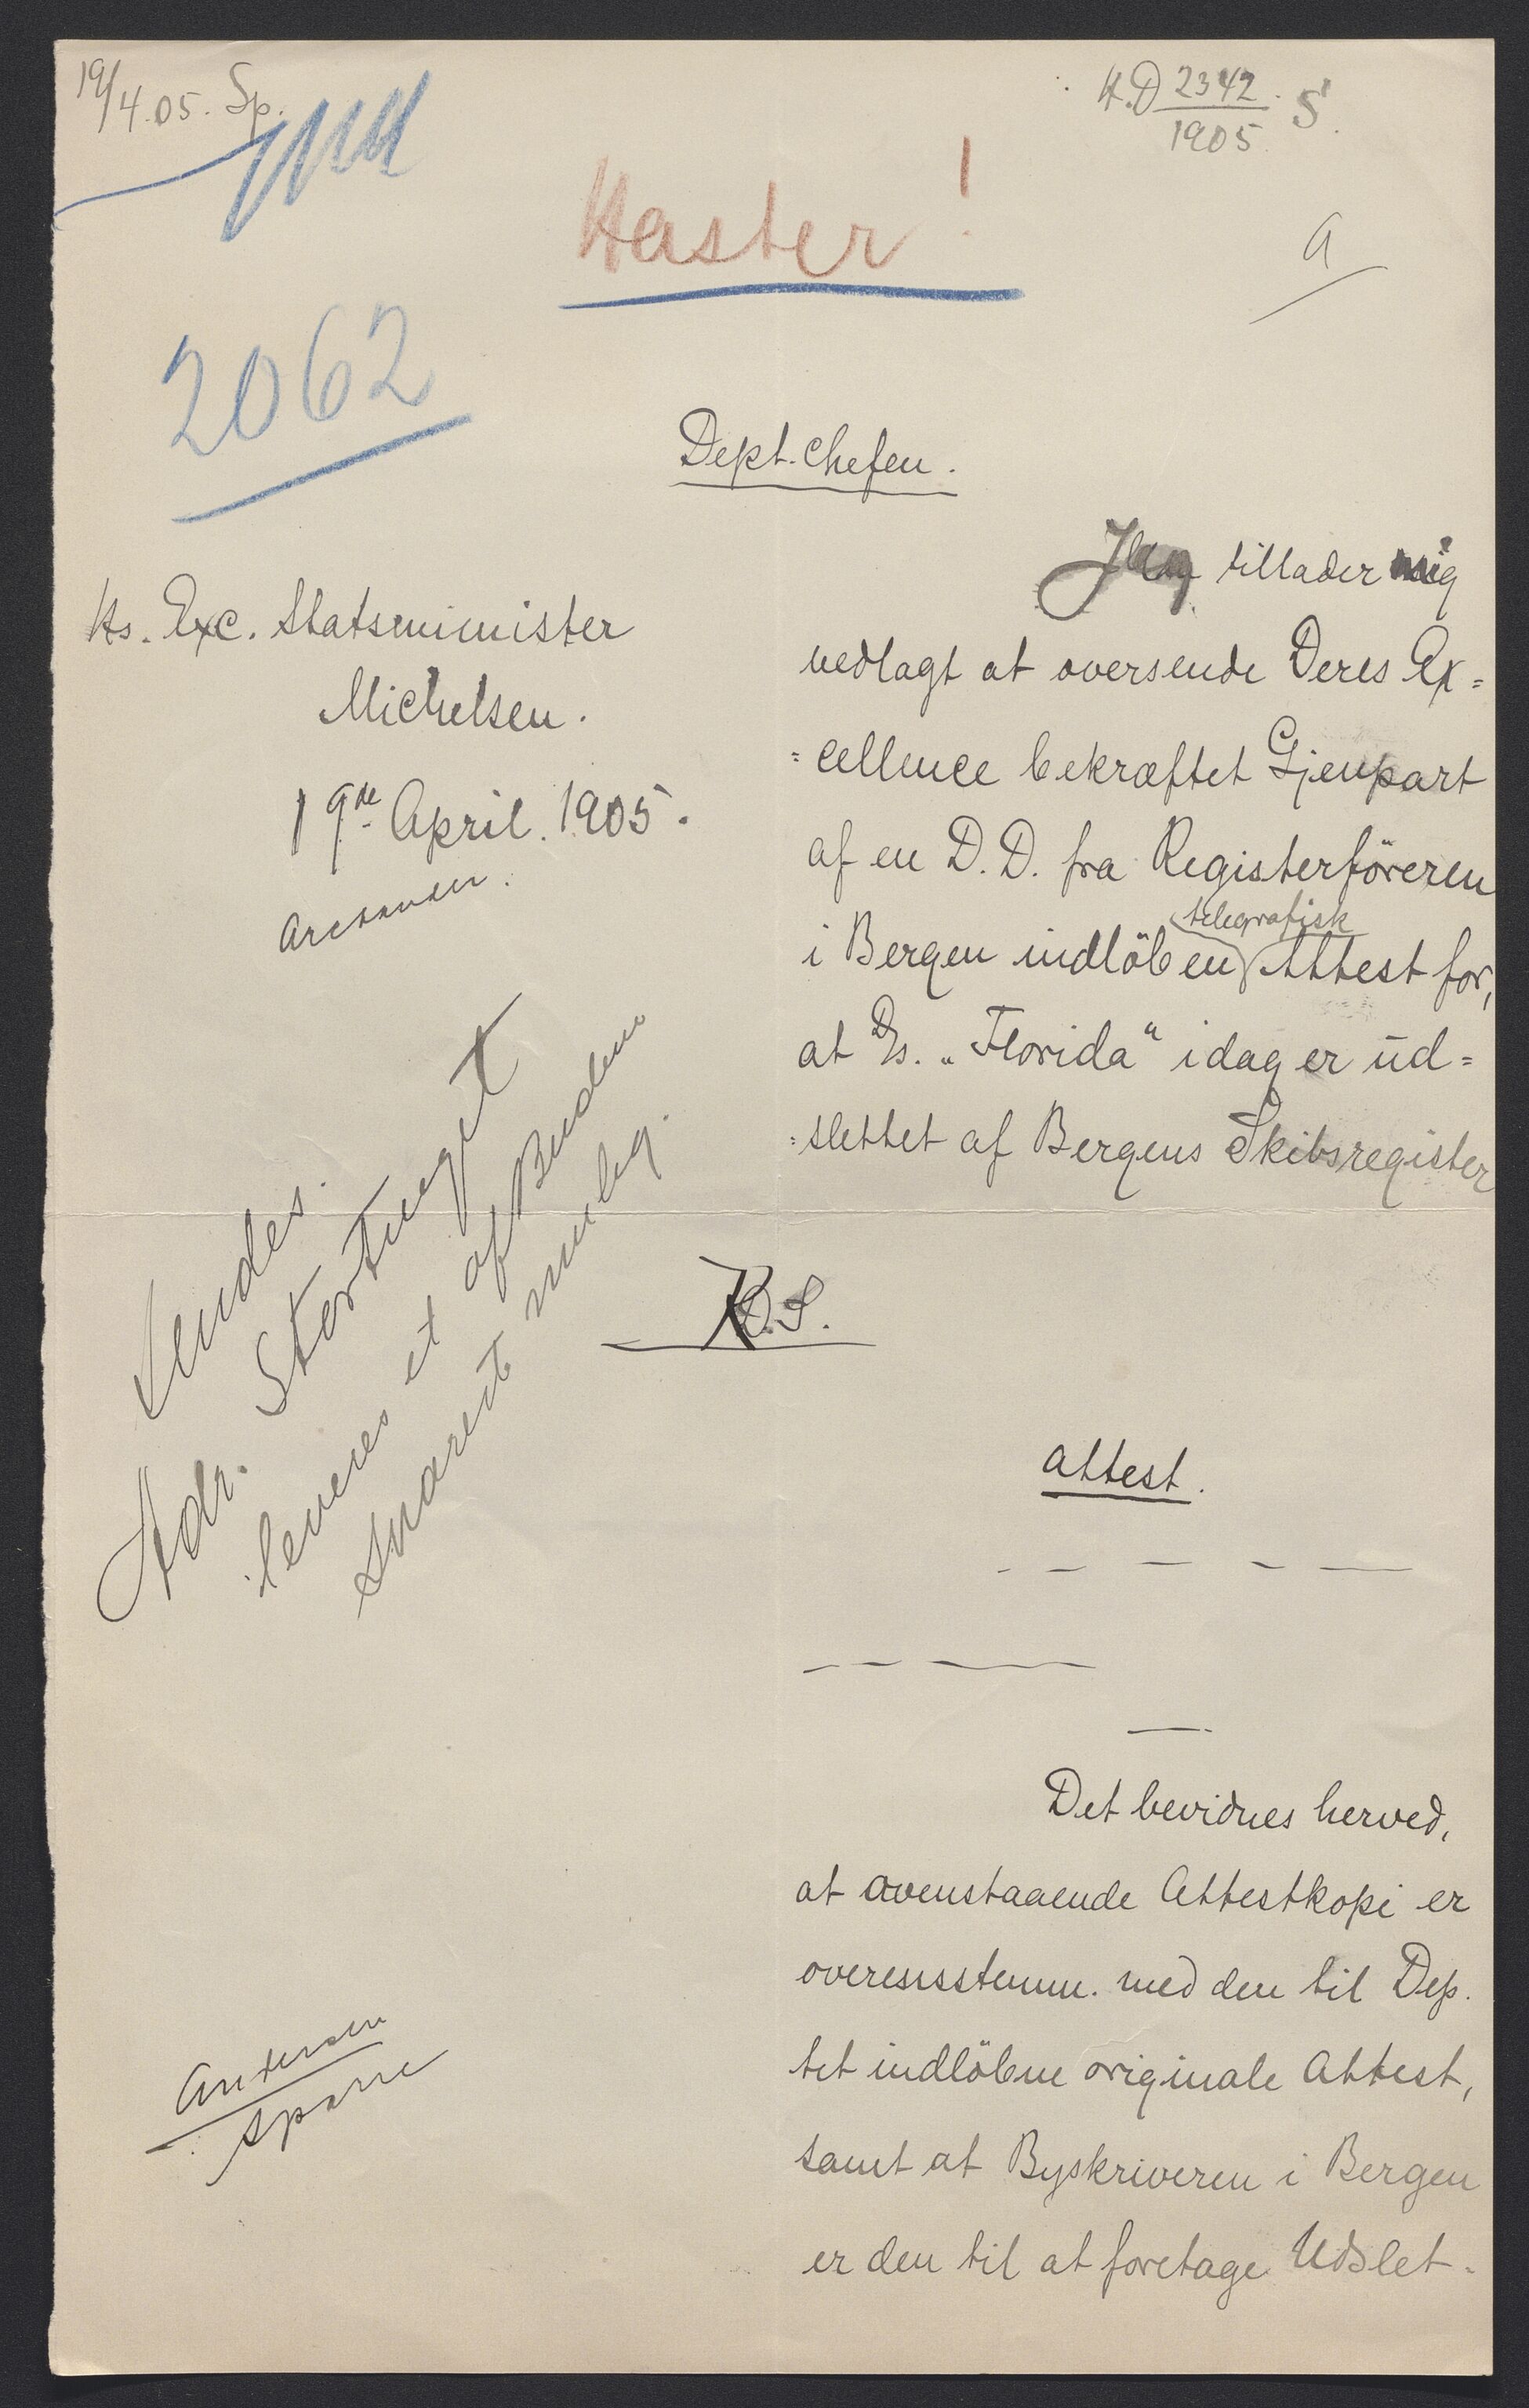 19/4.05. Sp.
H.D 2342 S.
1905.
Haster!
a
2062
Dept. chefen.
Hs. Exc. Statsminister
Michelsen.
19de April. 1905.
Jeg tillader mig
vedlagt at oversende Deres Ex=
=cellence bekræftet Gjenpart
af en D.D. fra Registerföreren
telegrafisk
i Bergen indlöben Attest for,
at D/s. „Florida" idag er ud=
=slettet af Bergens Skibsregister
Sendes.
Adr. Stortinget
leveres et af Budene
snarest mulig.
K.D.S.
Attest.
Det bevidnes herved,
at ovenstaaende Attestkopi er
overensstemm. med den til Dep.
tet indlöbne originale Attest,
samt at Byskriveren i Bergen
er den til at foretage Udslet-
Andersen
Sparre